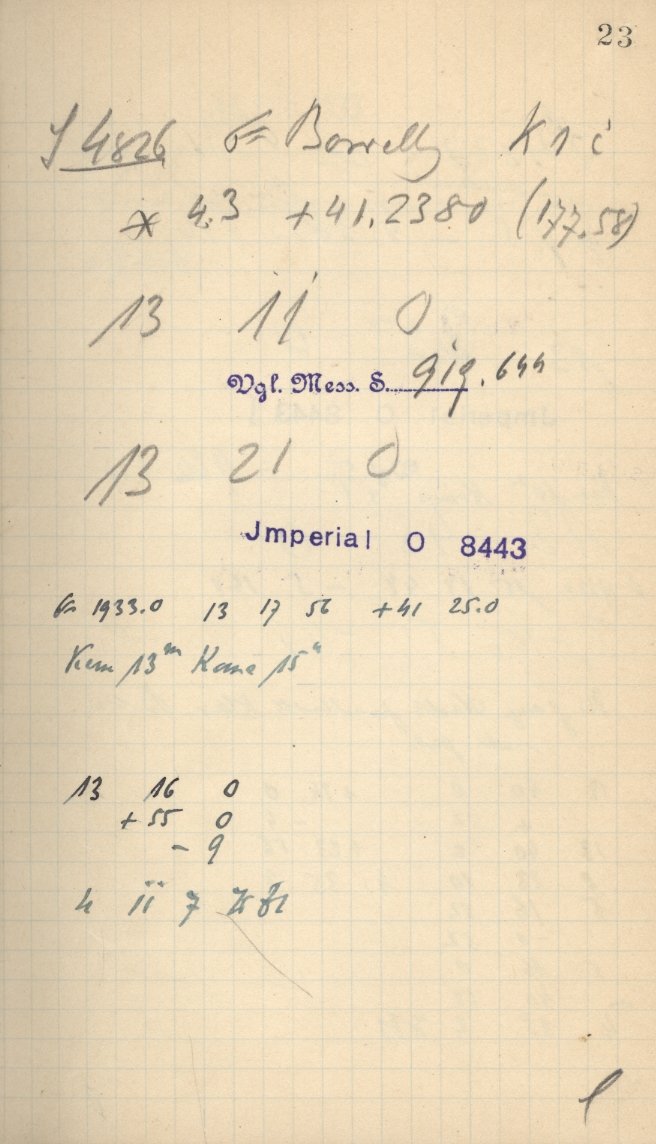 23
J 4826 Borrelly K 1 c
4.3 +41.2380 (177.58)
13 11 0
Vgl. Mess. S. 919.644
13 21 0
Jmperial O 8443
1933.0 13 17 56 +41 25.0
Kern 13ᵐ Koma 15
13 16 0
+55 0
- 9
4 7